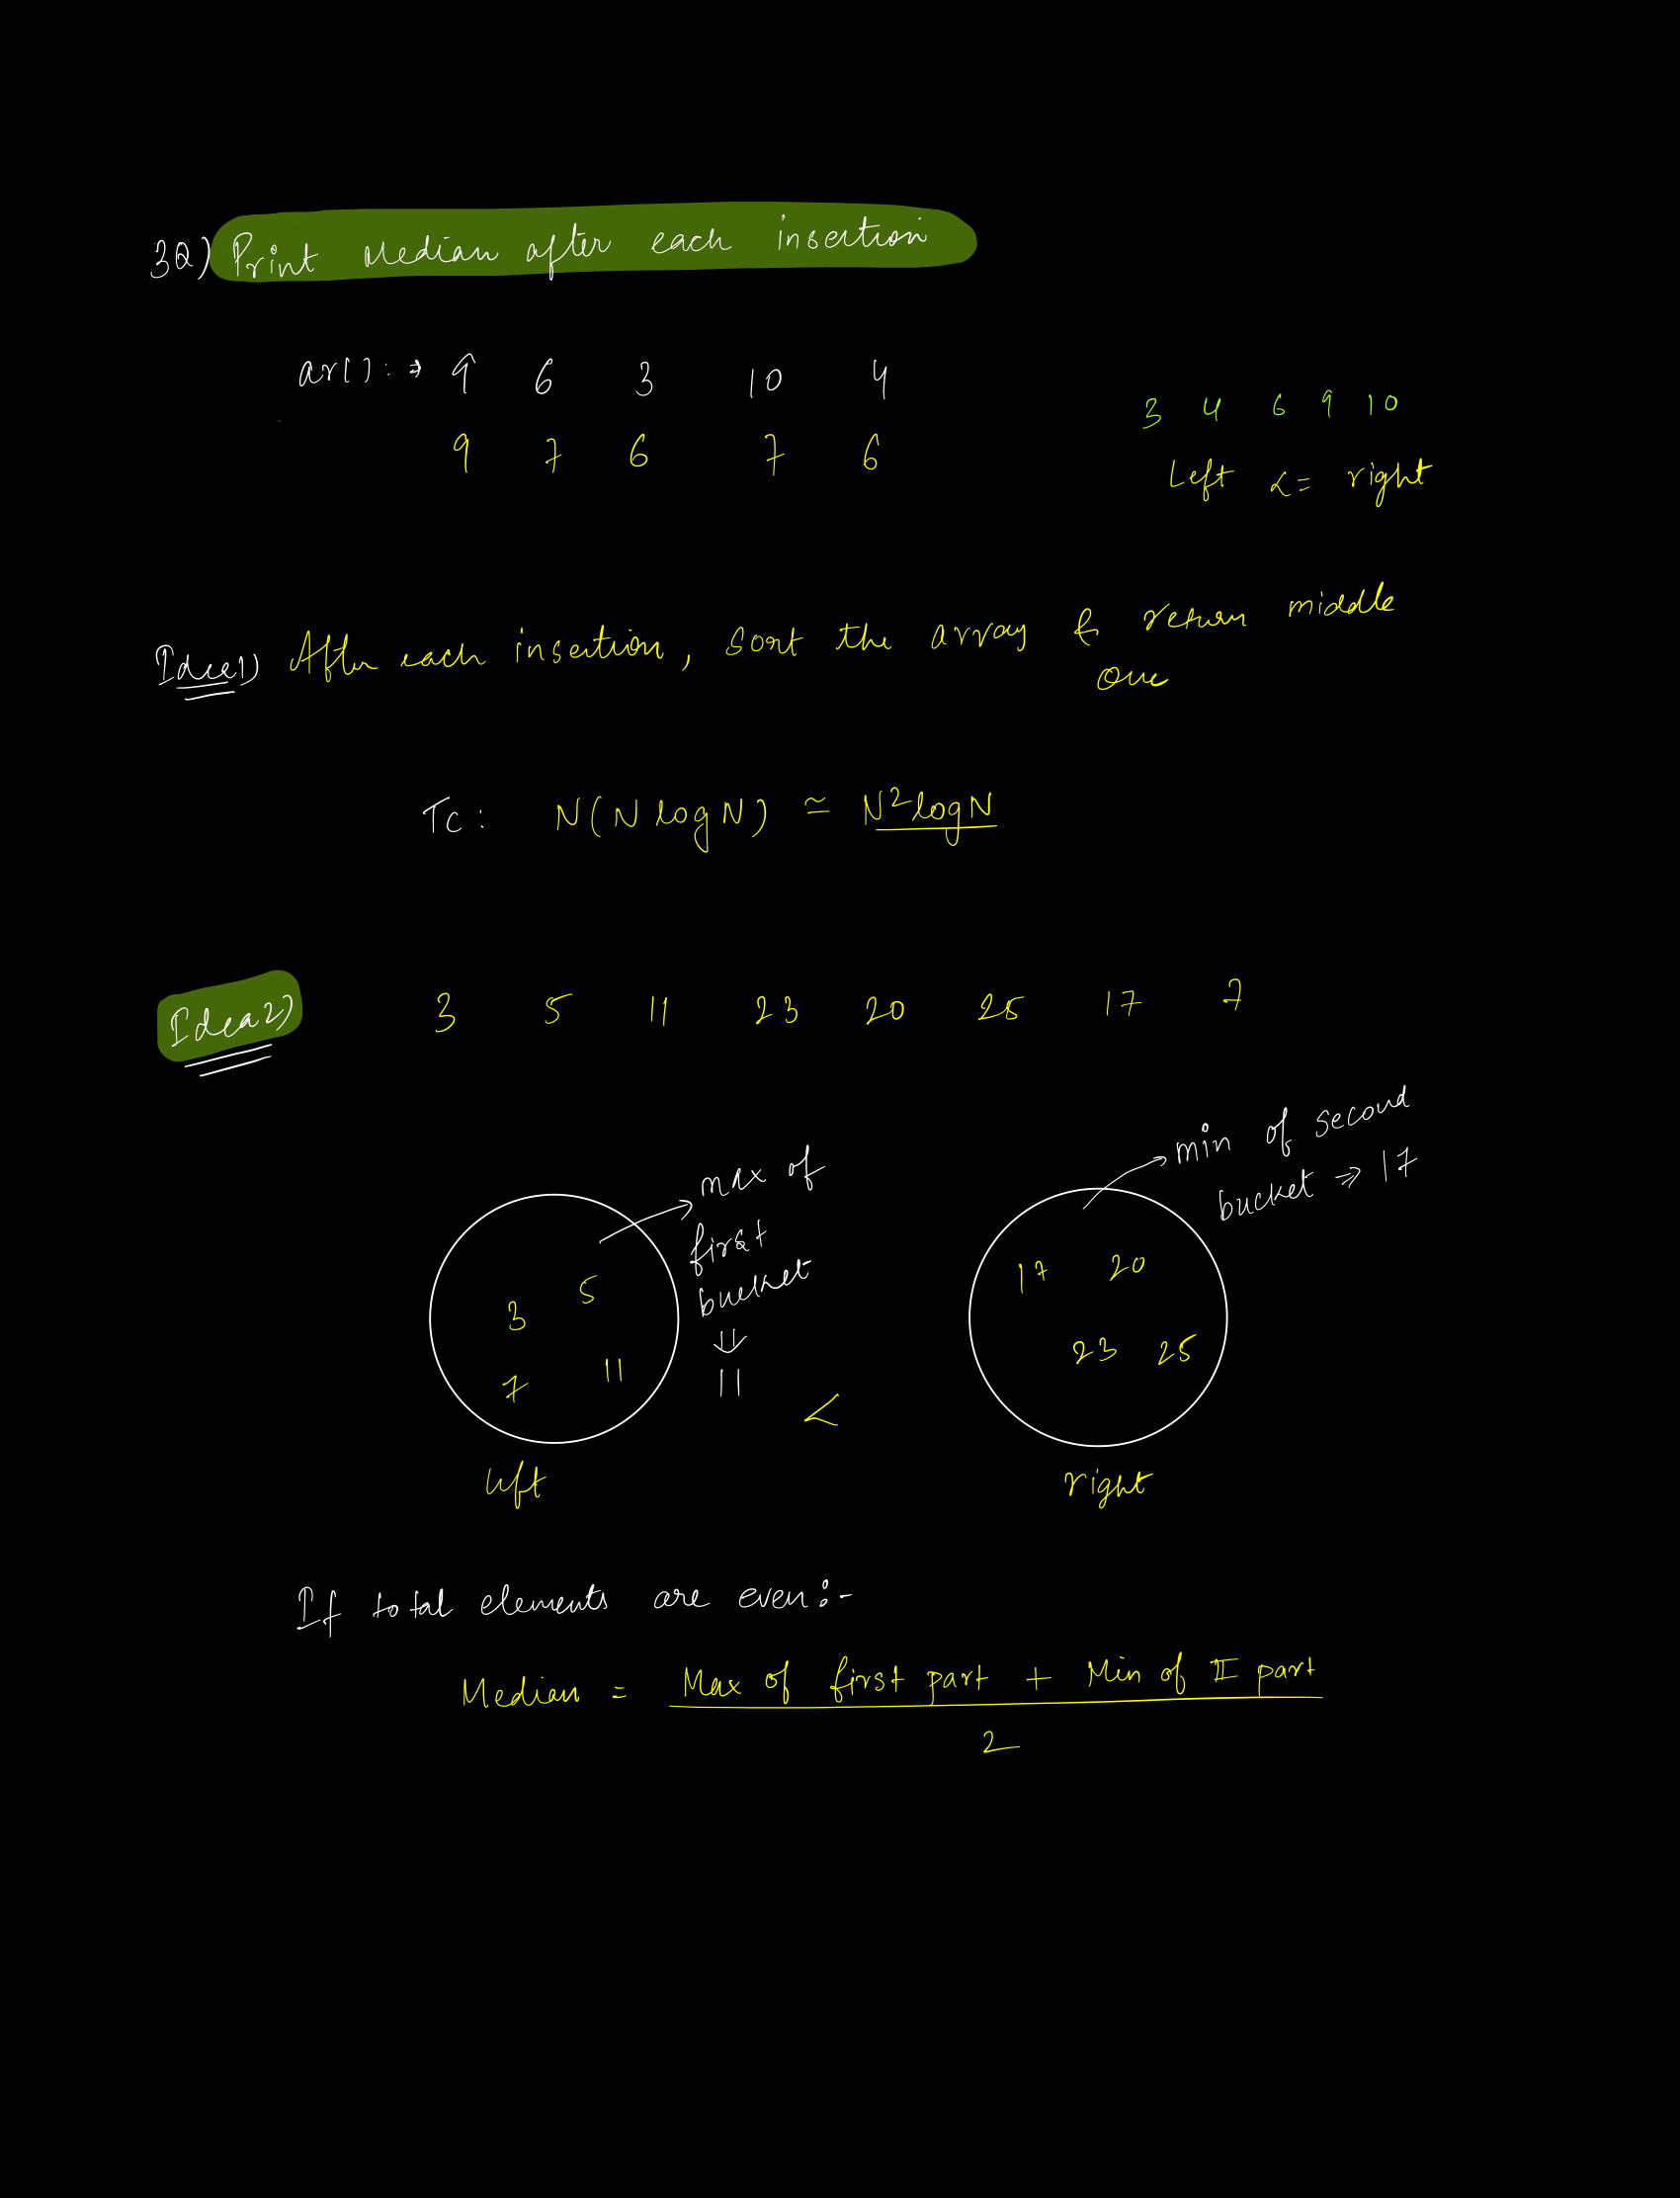 3Q) Print Median after each insertion
ar[] : ⇒ 9 6 3 10 4
9 7 6 7 6
3 4 6 9 10
Left <= right
Idea1) After each insertion, sort the array & return middle
one
TC : N(N log N) ≃ N²logN
Idea2) 3 5 11 23 20 25 17 7
max of
first
bucket
⇓
11
3 5
7 11
left
<
min of second
bucket ⇒ 17
17 20
23 25
right
If total elements are even:-
Median = Max of first part + Min of II part
2